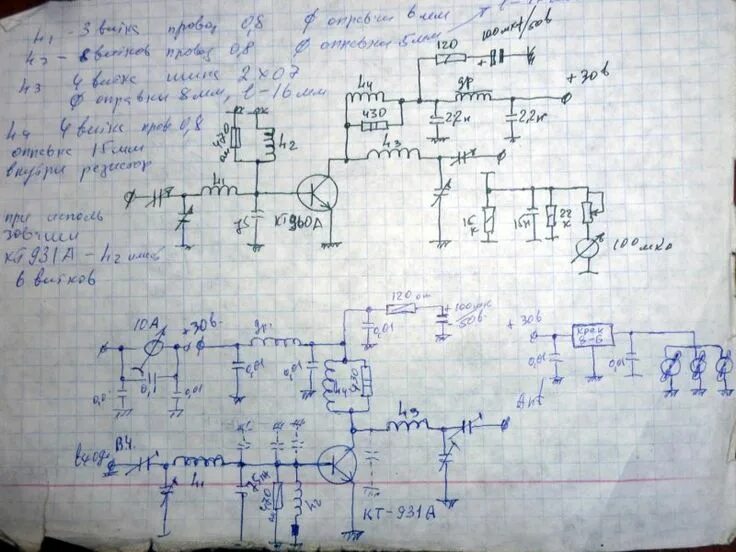 L1 - 3 витка провод 0,8 ф оправки 6 мм
L2 - 8 витков провод 0,8 ф оправки 5мм
L3 4 витка шина 2х0,7
ф оправки 8мм, l-16мм
L4 4 витка пров 0,8
оправка 15мм
внутри резистор
при исполь
зовании
КТ931А - L2
6 витков
120
100мкф/50в
L4
др
+30в
430
2,2н
2,2н
470
ом
L2
L3
L1
75
КТ960А
15
к
15н
22
к
100мка
10А
+30в.
др.
0,01
120 ом
+100мк
-50в
+30в
крен
8-Б
0,01
0,01
0,1
0,01
0,01
0,01
L4
430
Ant
L3
вход В.Ч.
L1
470
L2
КТ-931А